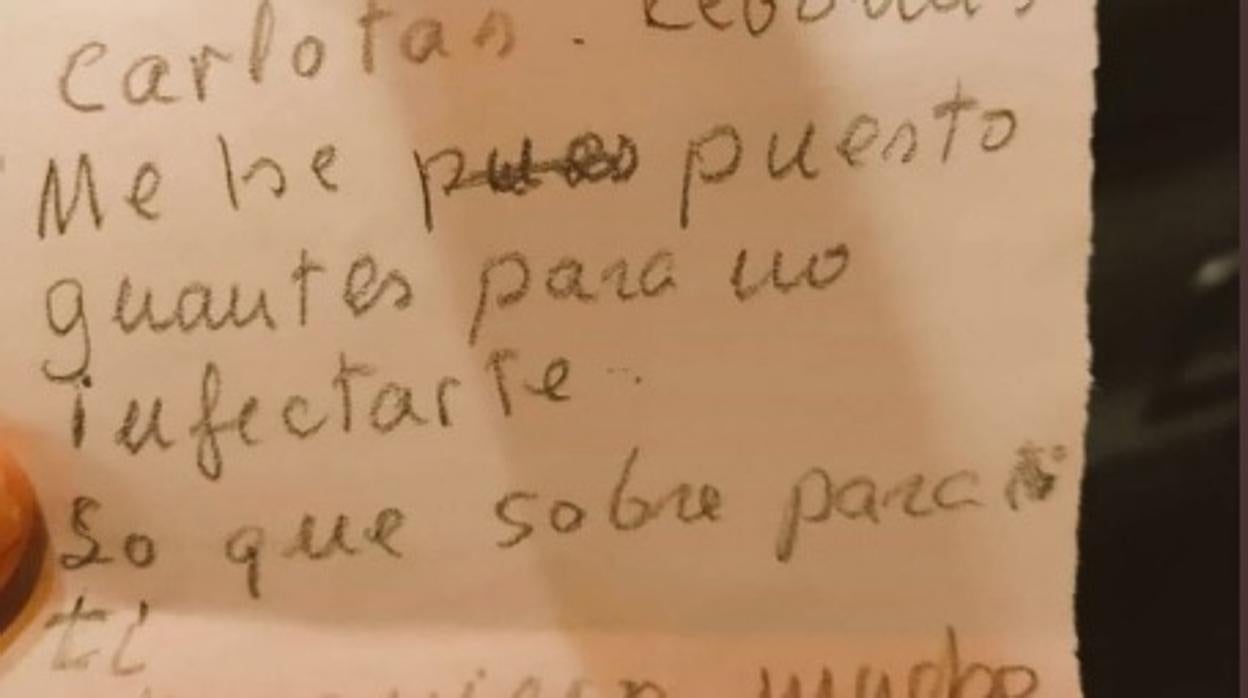 carlotas. Cebollas
Me he puesto
guantes para no
infectarte..
Lo que sobre para
ti
quiero mucho